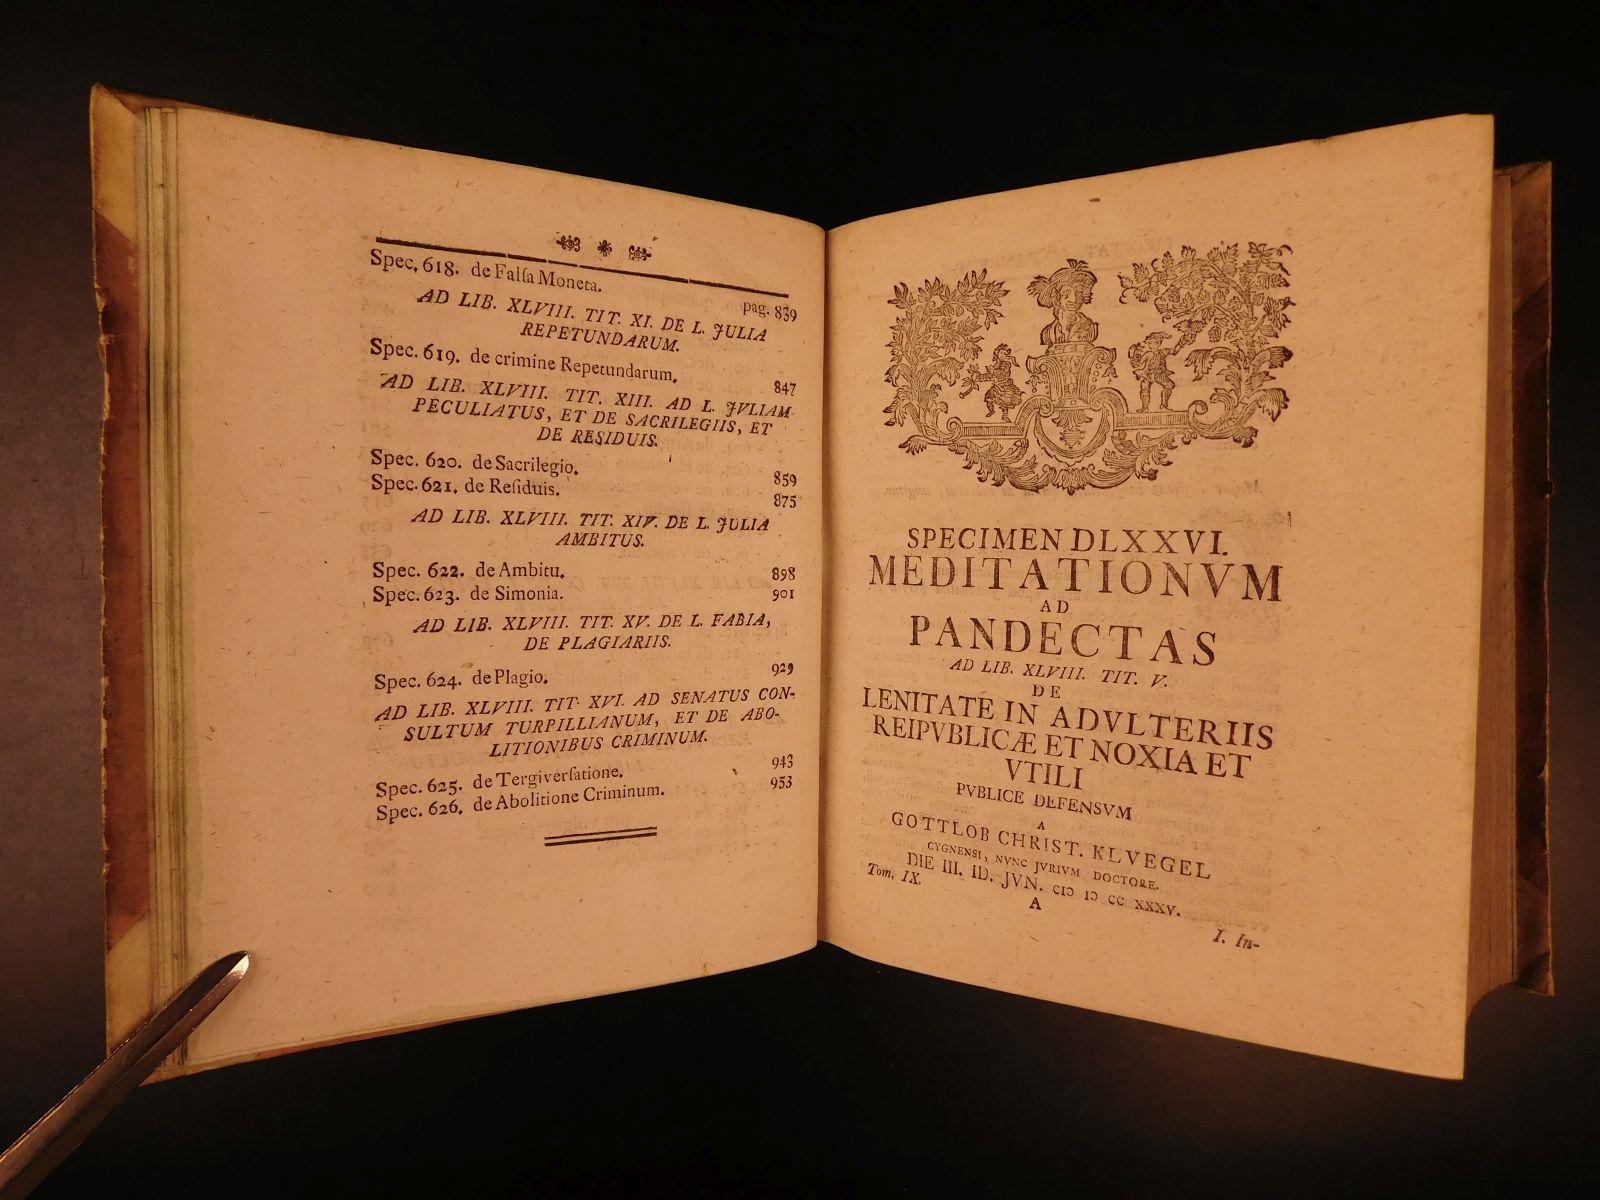 Spec. 618. de Falſa Moneta.
pag. 839
AD LIB. XLVIII. TIT. XI. DE L. JULIA
REPETUNDARUM.
Spec. 619. de crimine Repetundarum.
847
AD LIB. XLVIII. TIT. XIII. AD L. JVLIAM
PECULIATUS, ET DE SACRILEGIIS, ET
DE RESIDUIS.
Spec. 620. de Sacrilegio. 859
Spec. 621. de Reſiduis. 875
AD LIB. XLVIII. TIT. XIV. DE L. JULIA
AMBITUS.
Spec. 622. de Ambitu. 898
Spec. 623. de Simonia. 901
AD LIB. XLVIII. TIT. XV. DE L. FABIA,
DE PLAGIARIIS.
Spec. 624. de Plagio. 929
AD LIB. XLVIII. TIT. XVI. AD SENATUS CON-
SULTUM TURPILLIANUM, ET DE ABO-
LITIONIBUS CRIMINUM.
Spec. 625. de Tergiverſatione. 943
Spec. 626. de Abolitione Criminum. 953
SPECIMEN DLXXVI.
MEDITATIONVM
AD
PANDECTAS
AD LIB. XLVIII. TIT. V.
DE
LENITATE IN ADVLTERIIS
REIPVBLICÆ ET NOXIA ET
VTILI
PVBLICE DEFENSVM
A
GOTTLOB CHRIST. KLVEGEL
CYGNENSI, NVNC JVRIVM DOCTORE.
DIE III. ID. JVN. CIↃ IↃ CC XXXV.
Tom. IX.
A
I. In-